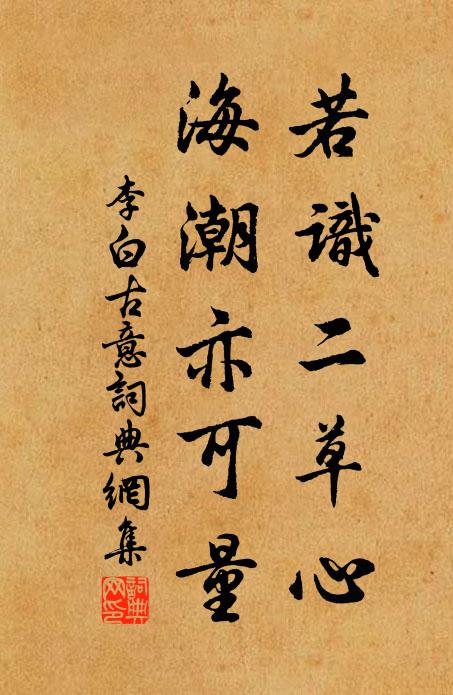 若識二草心
海潮亦可量
李白古意詞典網集
詞典網印